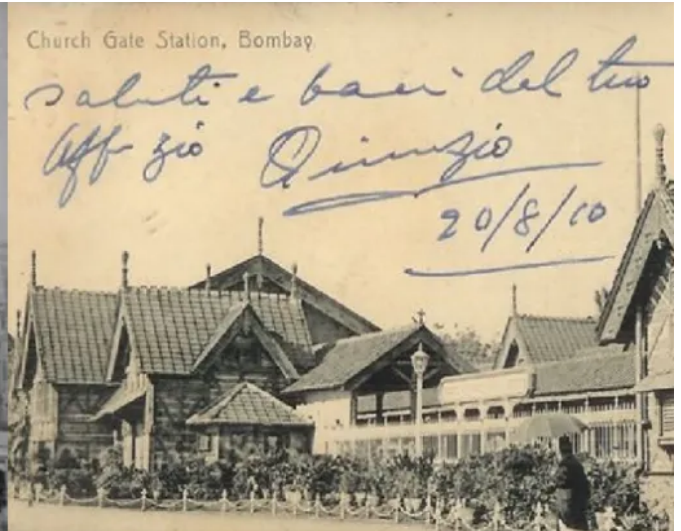 Church Gate Station, Bombay
saluti e baci del tuo
Aff. zio Quinzio
20/8/10